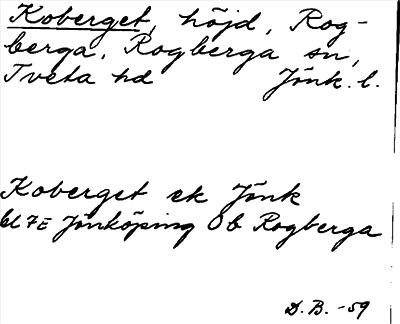 Koberget, höjd, Rog-
berga, Rogberga sn,
Tveta hd Jönk. l.
Koberget ek Jönk
bl 7E Jönköping Ob Rogberga
D. B. -59